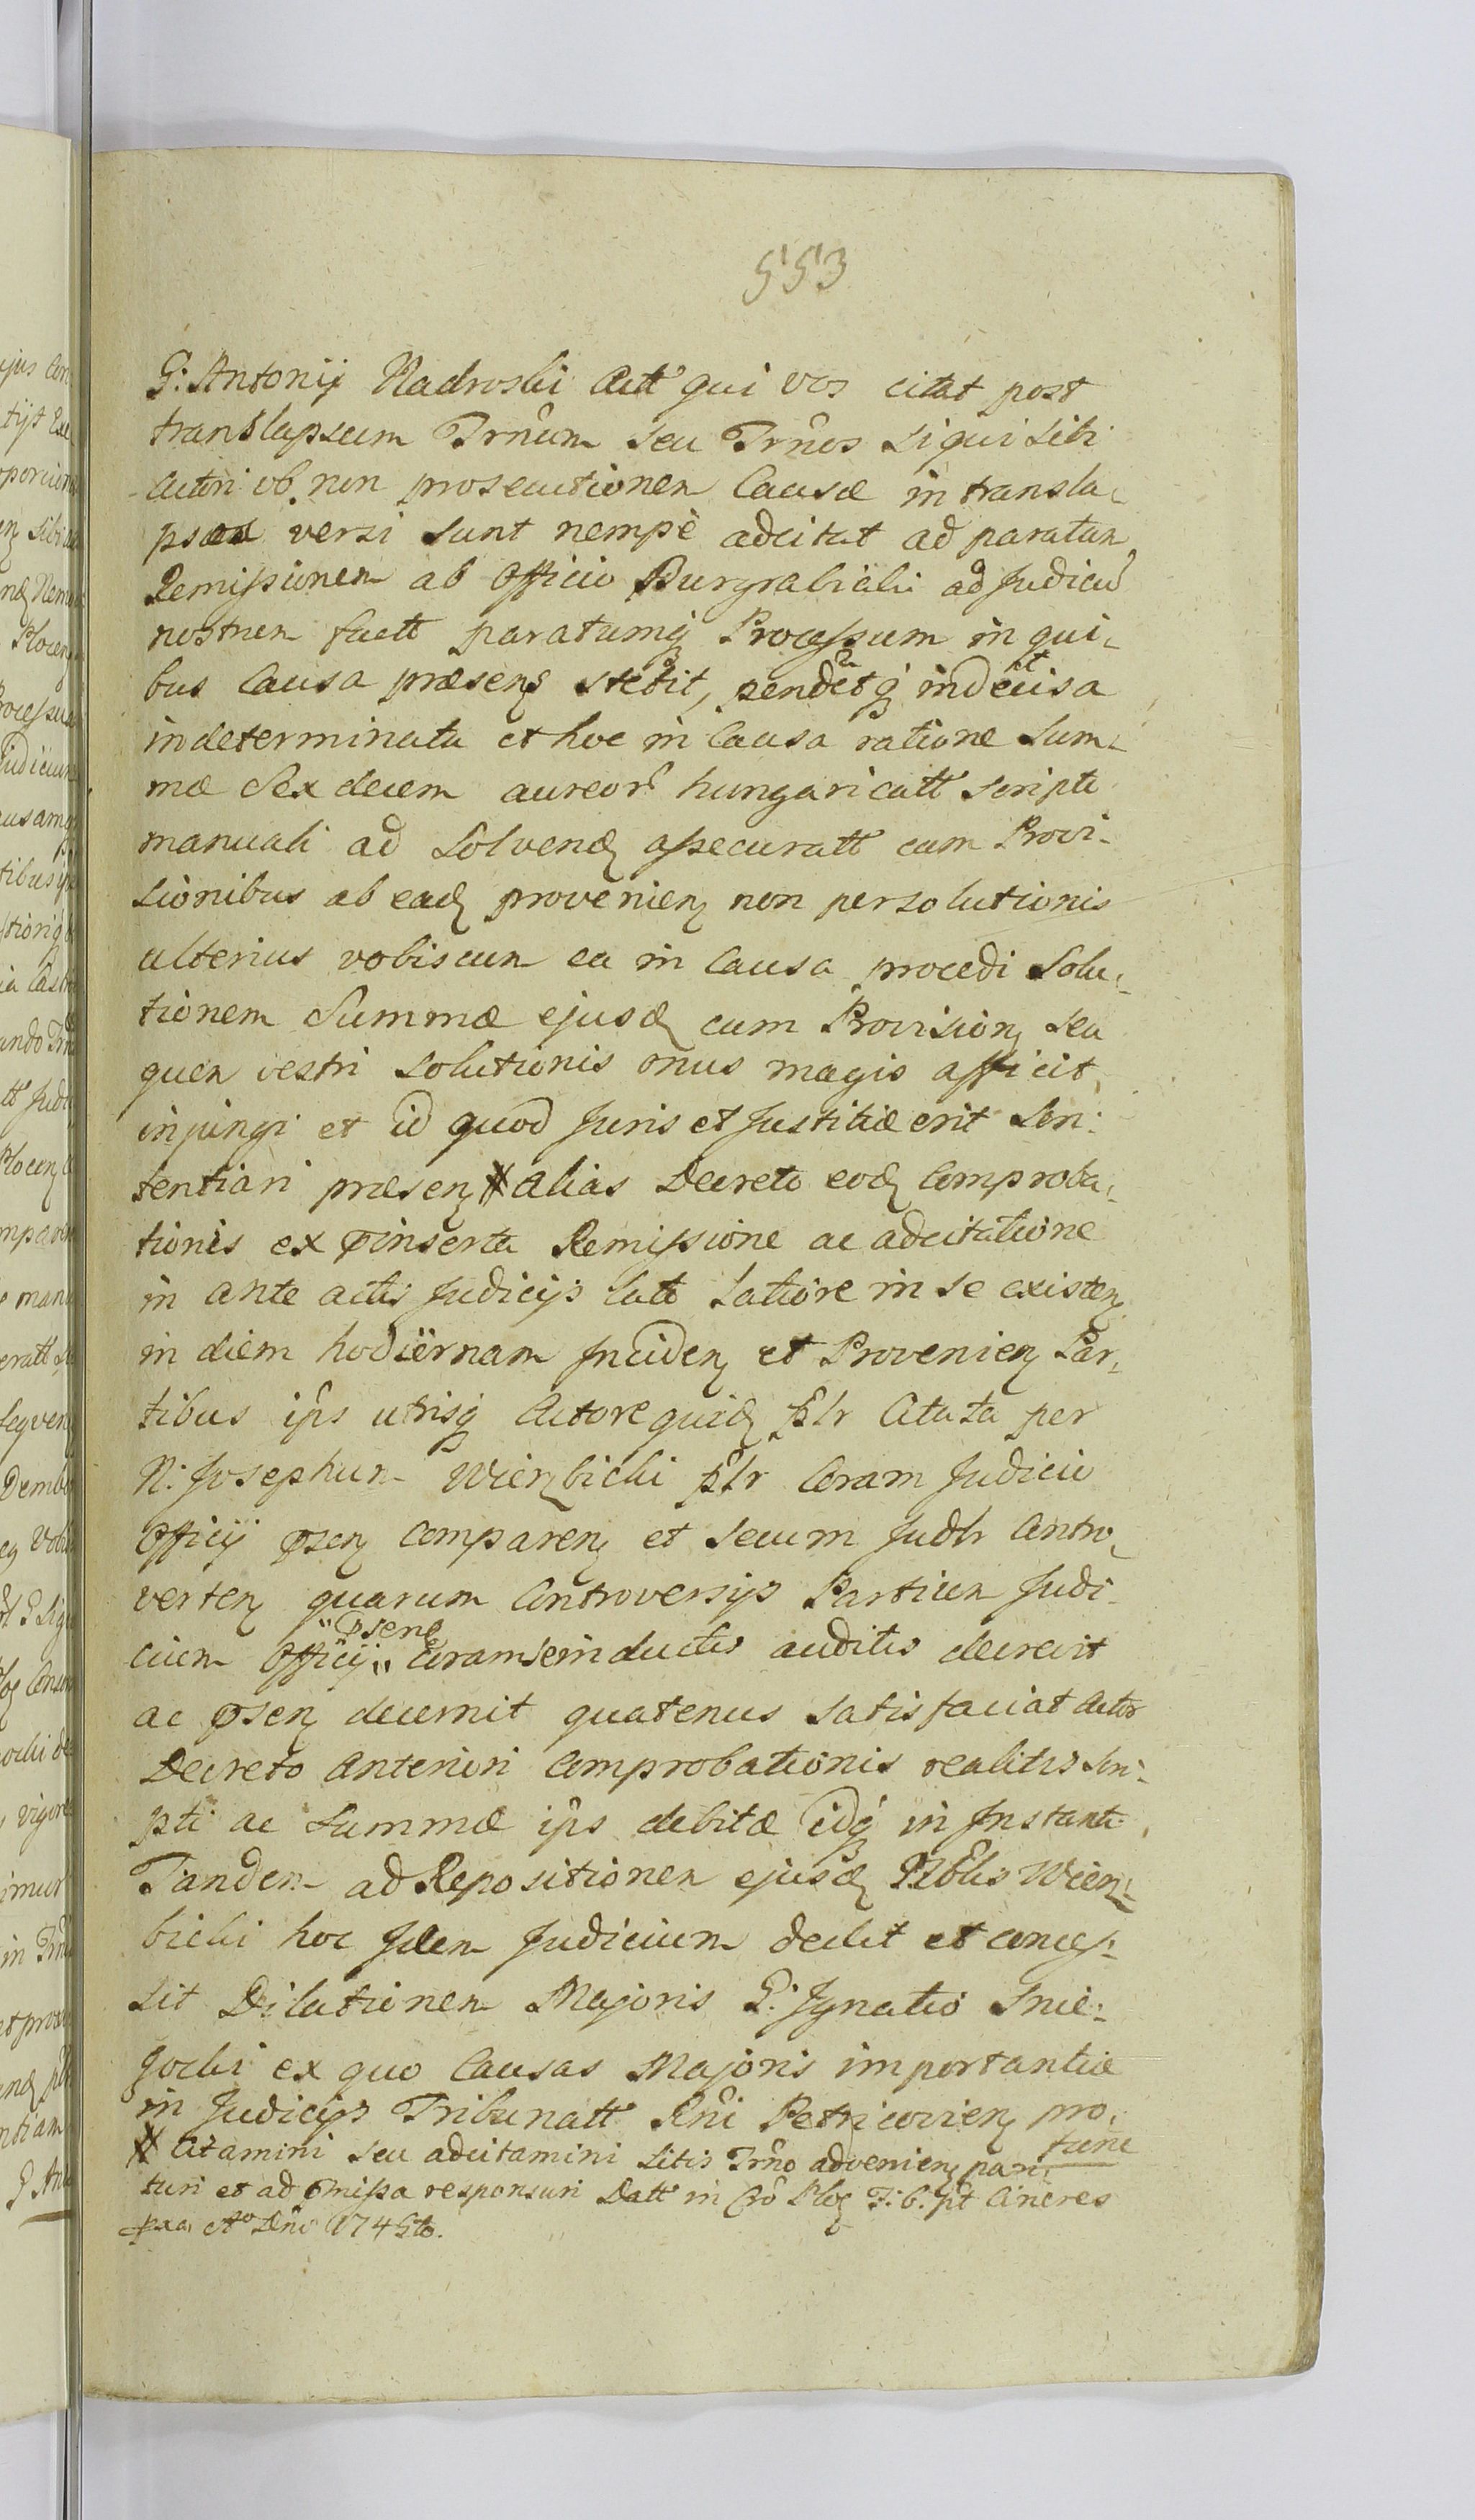 553
G: Antonij Nadroski Actt qui vos citat post
translapsum Trnum seu Trnos siqui sibi
Actori ob non prosecutionem Causæ in transla-
psum versi sunt nempè adcitat ad paratam
Remissionem ab Officio Burgrabiali ad Judiciu
nostrum factt paratumq Processum in qui-
bus Causa præsens stetit, pendetq indecisa
indeterminata et hoc in Causa ratione Sum-
mæ Sex decem aureor hungaricatt scripto
manuali ad Solvend assecuratt cum Provi-
sionibus ab ead provenien non persolutionis
ulterius vobiscum ea in Causa procedi Solu-
tionem Summæ ejusd cum Provision seu
quem vestri solutionis onus magis afficit
injungi et id quod Juris et Justitiæ erit Sen-
tentiari præsen # alias Decreto eod Comproba-
tionis ex pinserta Remissione ac adcitatione
in ante actis Judicijs lato latiore in se existen
in diem hodiernam Inciden et Provenien Par-
tibus ips utrisq Actore quid plr Citata per
N: Josephum Wierzbicki plr Coram Judicio
Officij psen Comparen et secum Judlr Contro-
verten quarum Controversijs Partium Judi-
cium Officij psens Coram se inductis auditis decrevit
ac psen decernit quatenus satisfaciat Actor
Decreto Anteriori Comprobationis realitis Scri-
pti ac Summæ ips debitæ idq in Instanti
Tandem ad Repositionem ejusd Nobilis Wierz-
bicki hoc Idem Judicium dedit et conces-
sit Dilationem Majoris G: Ignatio Snie-
gocki ex quo Causas Majoris importantiæ
in Judicijs Tribunatt Rni Petricovien pro
tunc
# Citamini seu adcitamini Litis Trno advenien pari-
turi et ad pmissa responsuri Datt in Cro Ploc F: 6. pt Cineres
pxa Ao Dni 1745to.